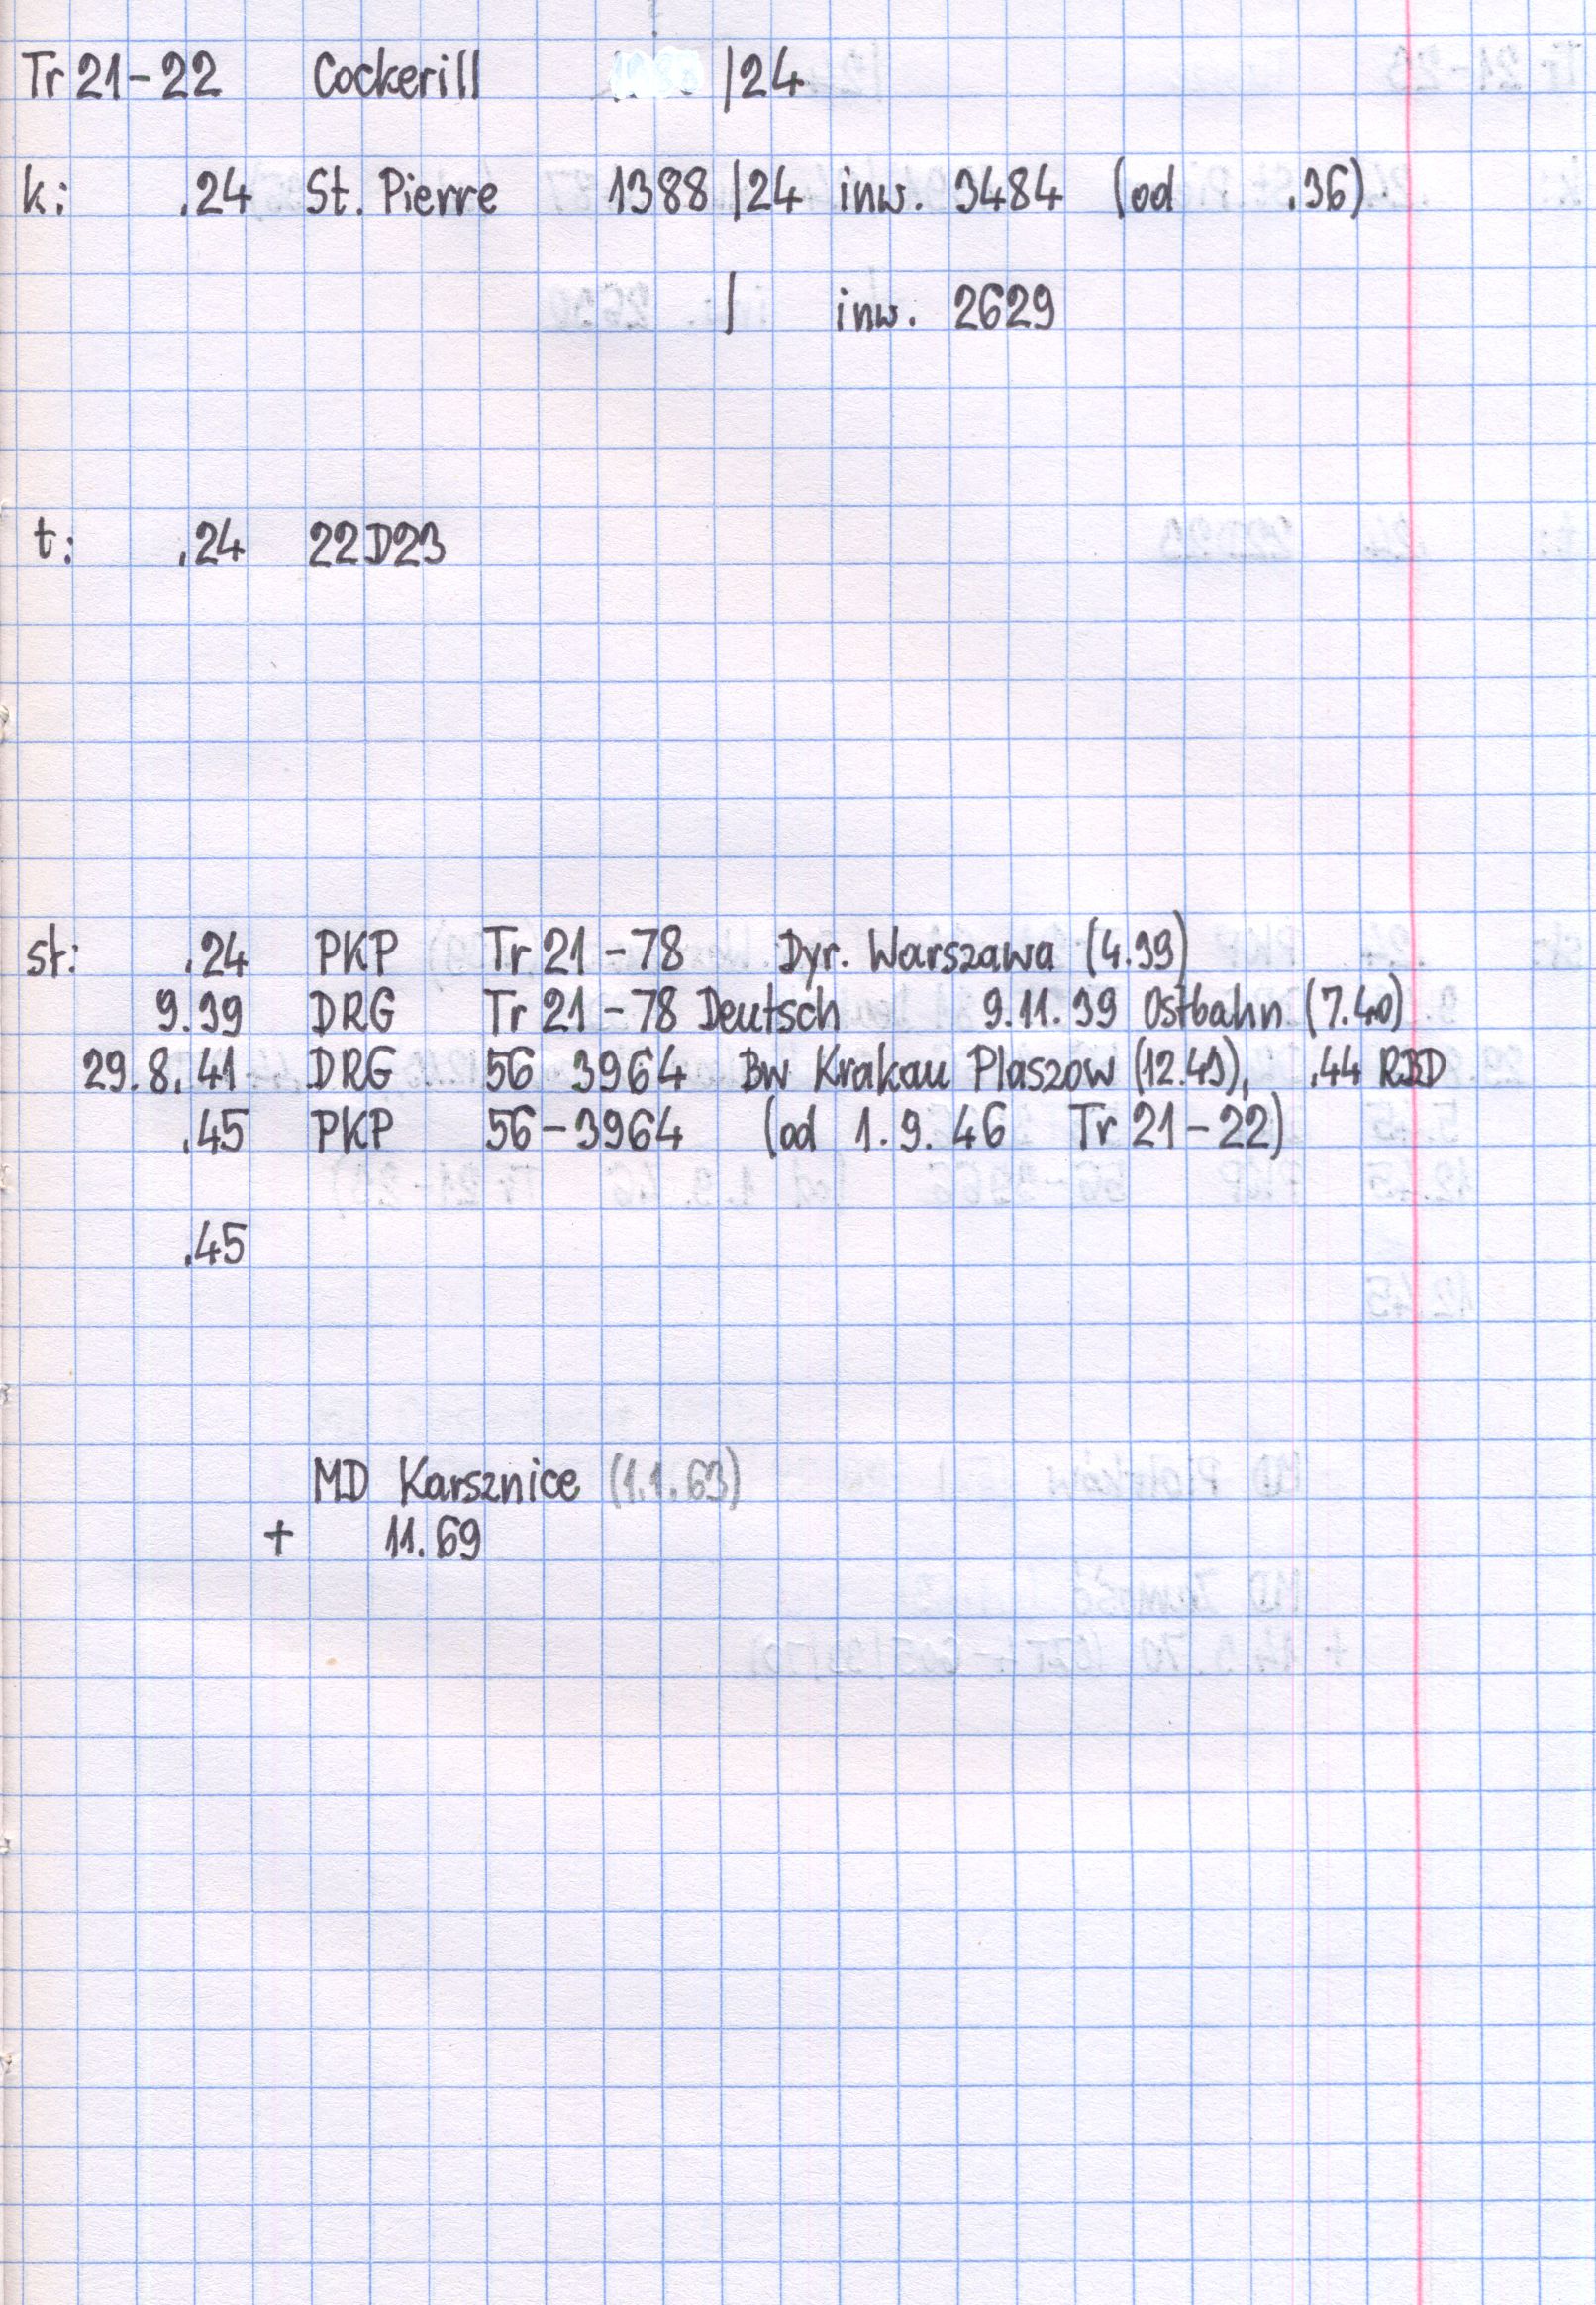 Tr 21-22 Cockerill /24
k: .24 St. Pierre 1388/24 inw. 3484 (od .36)
/ inw. 2629
t: .24 22D23
st: .24 PKP Tr 21-78 Dyr. Warszawa (4.39)
9.39 DRG Tr 21-78 Deutsch 9.11.39 Ostbahn (7.40)
29.8.41 DRG 56 3964 Bw Krakau Plaszow .44 RBD
.45 PKP 56-3964 (od 1.9.46 Tr 21-22)
.45
MD Karsznice (1.1.63)
+ 11.69